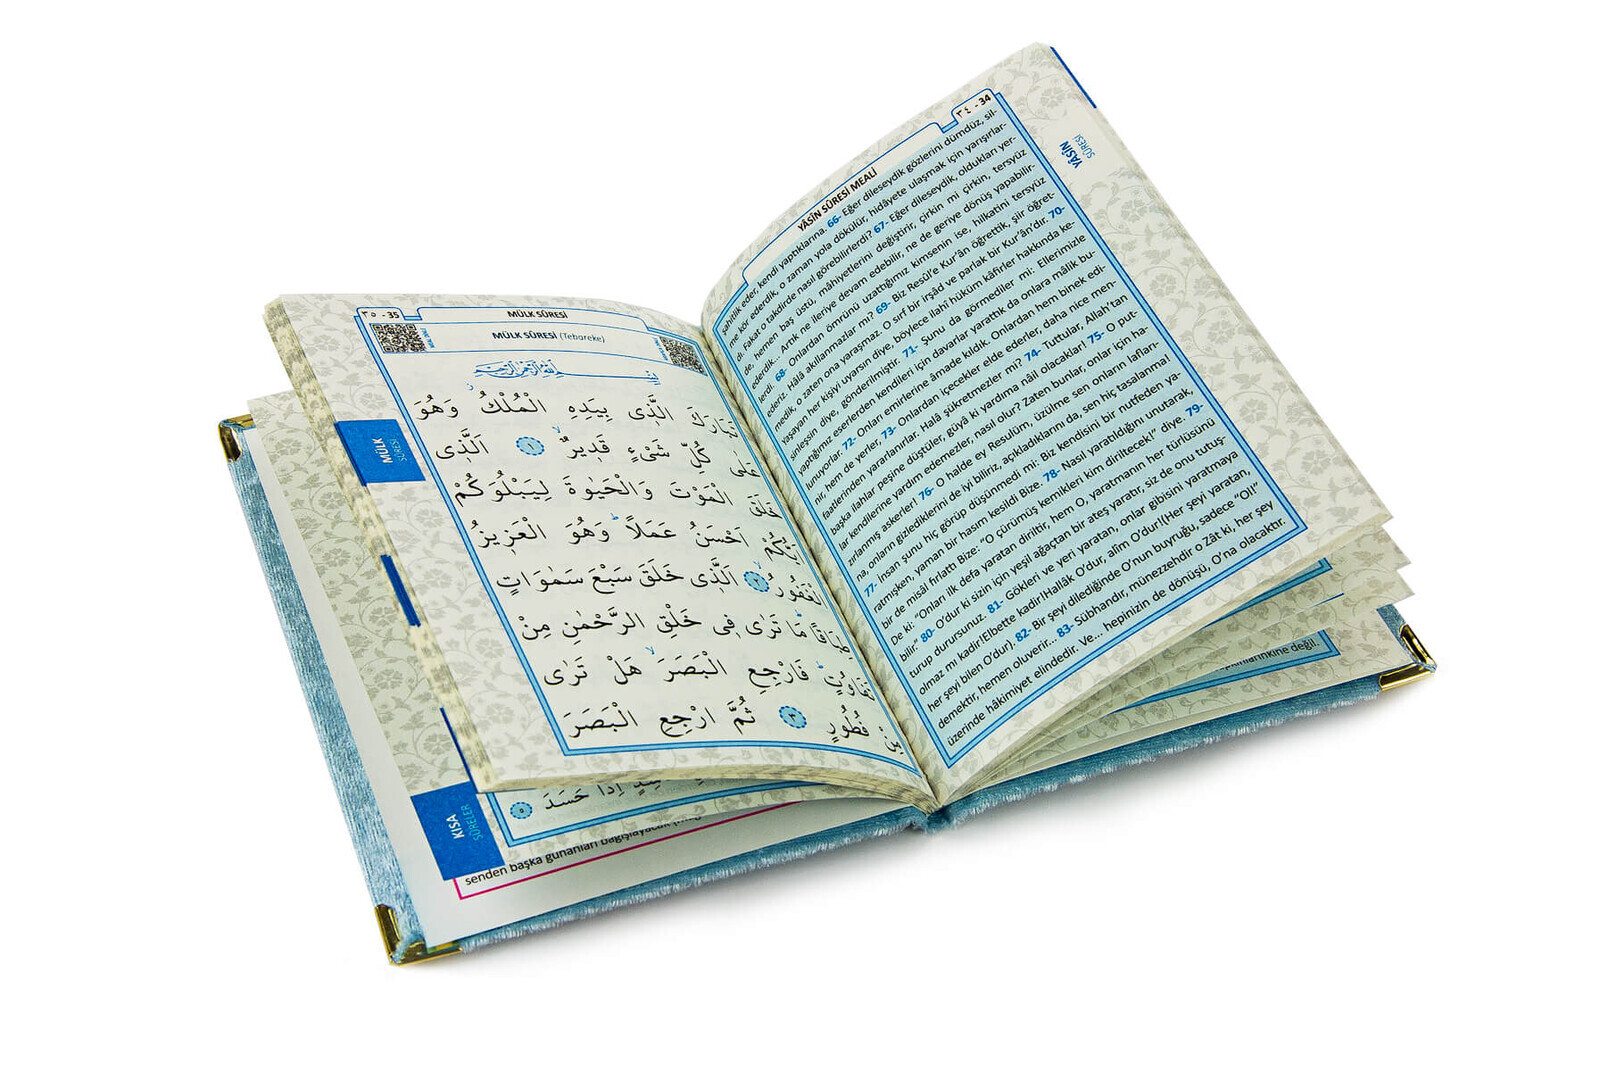 ٣٥ - 35
MÜLK SÛRESİ
MÜLK SÛRESİ (Tebareke)
بِسْمِ اللّٰهِ الرَّحْمٰنِ الرَّحِيمِ
تَبَارَكَ الَّذ۪ى بِيَدِهِ الْمُلْكُ وَهُوَ
عَلٰى كُلِّ شَىْءٍ قَد۪يرٌ ١ اَلَّذ۪ى
خَلَقَ الْمَوْتَ وَالْحَيٰوةَ لِيَبْلُوَكُمْ
اَيُّكُمْ اَحْسَنُ عَمَلًا وَهُوَ الْعَز۪يزُ
الْغَفُورُ ٢ اَلَّذ۪ى خَلَقَ سَبْعَ سَمٰوَاتٍ
طِبَاقًا مَا تَرٰى ف۪ى خَلْقِ الرَّحْمٰنِ مِنْ
تَفَاوُتٍ فَارْجِعِ الْبَصَرَ هَلْ تَرٰى
مِنْ فُطُورٍ ٣ ثُمَّ ارْجِعِ الْبَصَرَ
MÜLK
SÛRESİ
KISA
SÛRELER
اِذَا حَسَدَ ٥
senden başka günahları bağışlayacak
٣٤ - 34
YÂSÎN SÛRESİ MEALİ
YÂSÎN
SÛRESİ
şahitlik eder, kendi yaptıklarına. 66- Eğer dileseydik gözlerini dümdüz, sil-
me kör ederdik, o zaman yola dökülür, hidâyete ulaşmak için yarışırlar-
di. Fakat o takdirde nasıl görebilirlerdi? 67- Eğer dileseydik, oldukları yer-
de, hemen baş üstü, mâhiyetlerini değiştirir, çirkin mi çirkin, tersyüz
ederdik... Artık ne ileriye devam edebilir, ne de geriye dönüş yapabilir-
lerdi. 68- Onlardan ömrünü uzattığımız kimsenin ise, hilkatini tersyüz
ederiz. Hâlâ akıllanmazlar mı? 69- Biz Resûl'e Kur'ân öğrettik, şiir öğret-
medik, o zaten ona yaraşmaz. O sırf bir irşâd ve parlak bir Kur'ân'dır. 70-
yaşayan her kişiyi uyarsın diye, böylece ilahî hüküm kâfirler hakkında ke-
sinleşsin diye, gönderilmiştir. 71- Şunu da görmediler mi: Ellerimizle
yaptığımız eserlerden kendileri için davarlar yarattık da onlara mâlik bu-
lunuyorlar. 72- Onları emirlerine âmade kıldık. Onlardan hem binek edi-
nir, hem de yerler, 73- Onlardan içecekler elde ederler, daha nice men-
faatlerinden yararlanırlar. Halâ şükretmezler mi? 74- Tuttular, Allah'tan
başka ilahlar peşine düştüler, güyâ ki yardıma nâil olacaklar! 75- O put-
lar kendilerine yardım edemezler, nasıl olur? Zaten bunlar, onlar için ha-
zırlanmış askerler! 76- O halde ey Resulüm, üzülme sen onların lafları-
na, onların gizlediklerini de iyi biliriz, açıkladıklarını da, sen hiç tasalanma!
77- İnsan şunu hiç görüp düşünmedi mi: Biz kendisini bir nutfeden ya-
ratmışken, yaman bir hasım kesildi Bize. 78- Nasıl yaratıldığını unutarak,
bir de misâl fırlattı Bize: "O çürümüş kemikleri kim diriltecek!" diye. 79-
De ki: "Onları ilk defa yaratan diriltir, hem O, yaratmanın her türlüsünü
bilir." 80- O'dur ki sizin için yeşil ağaçtan bir ateş yaratır, siz de onu tutuş-
turup durursunuz. 81- Gökleri ve yeri yaratan, onlar gibisini yaratmaya
olmaz mı kadir(Elbette kadir)Hallâk O'dur, alîm O'dur!(Her şeyi yaratan,
her şeyi bilen O'dur). 82- Bir şeyi dilediğinde O'nun buyruğu, sadece "Ol!"
demektir, hemen oluverir... 83- Sübhandır, münezzehdir o Zât ki, her şey
üzerinde hâkimiyet elindedir. Ve... hepinizin de dönüşü, O'na olacaktır.
değil.